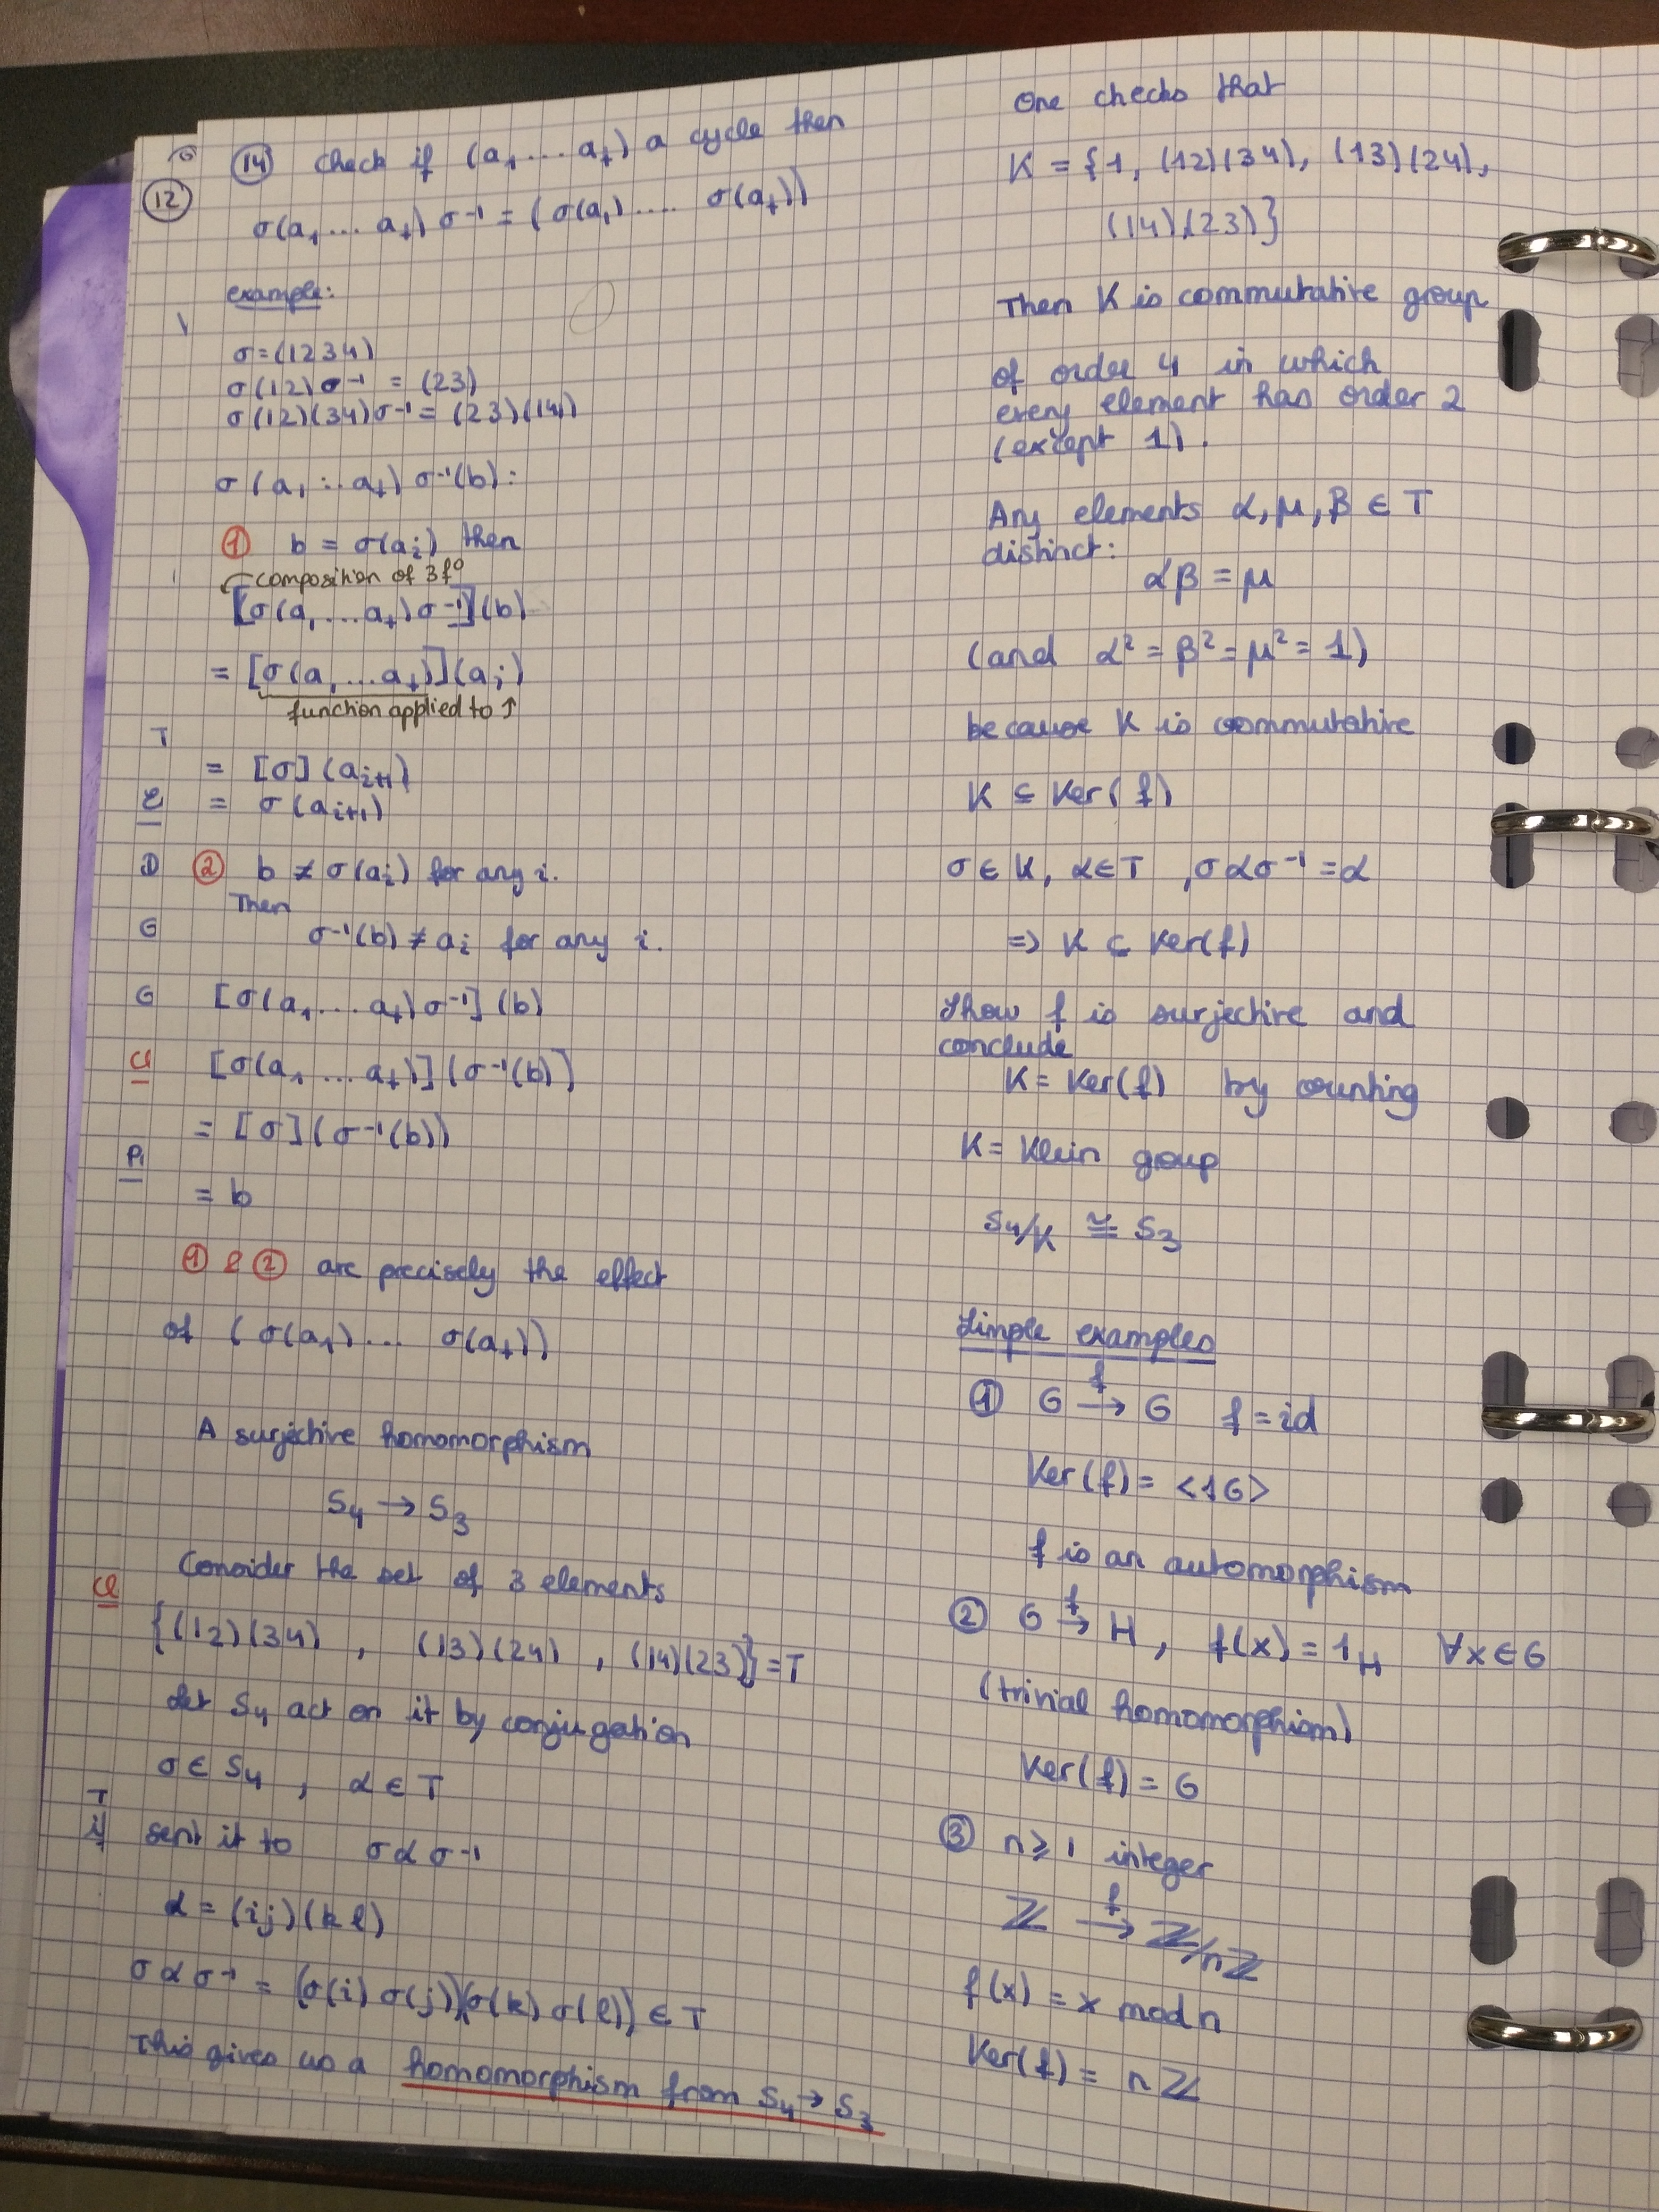 (14) Check if (a₁ .... a_t) a cycle then
(12)
σ(a₁ ... a_t) σ⁻¹ = (σ(a₁) .... σ(a_t))
example:
σ=(1234)
σ(12)σ⁻¹ = (23)
σ(12)(34)σ⁻¹ = (23)(14)
σ(a₁ ... a_t) σ⁻¹(b):
① b = σ(aᵢ) then
composition of 3 f°
[σ(a₁ ... a_t)σ⁻¹](b)
= [σ(a₁ ... a_t)](aᵢ)
function applied to ↑
T
= [σ](aᵢ₊₁)
= σ(aᵢ₊₁)
D
② b ≠ σ(aᵢ) for any i.
Then
G
σ⁻¹(b) ≠ aᵢ for any i.
G
[σ(a₁ ... a_t)σ⁻¹](b)
[σ(a₁ ... a_t)](σ⁻¹(b))
= [σ](σ⁻¹(b))
= b
① & ② are precisely the effect
of (σ(a₁) ... σ(a_t))
A surjective homomorphism
S₄ → S₃
Consider the set of 3 elements
{(12)(34) , (13)(24) , (14)(23)} = T
Let S₄ act on it by conjugation
σ ∈ S₄ , α ∈ T
T
if
sent it to σασ⁻¹
α = (ij)(kl)
σασ⁻¹ = (σ(i) σ(j))(σ(k) σ(l)) ∈ T
This gives us a homomorphism from S₄ → S₃
One checks that
K = {1, (12)(34), (13)(24),
(14)(23)}
Then K is commutative group
of order 4 in which
every element has order 2
(except 1).
Any elements α, μ, β ∈ T
distinct:
αβ = μ
(and α² = β² = μ² = 1)
because K is commutative
K ⊆ Ker(f)
σ ∈ K, α ∈ T , σασ⁻¹ = α
=> K ⊆ Ker(f)
Show f is surjective and
conclude
K = Ker(f) by counting
K = Klein group
S₄/K ≅ S₃
Simple examples
① G →^f G f = id
Ker(f) = <1G>
f is an automorphism
② G →^f H , f(x) = 1_H ∀x∈G
(trivial homomorphism)
Ker(f) = G
③ n ≥ 1 integer
ℤ →^f ℤ/nℤ
f(x) = x mod n
Ker(f) = nℤ